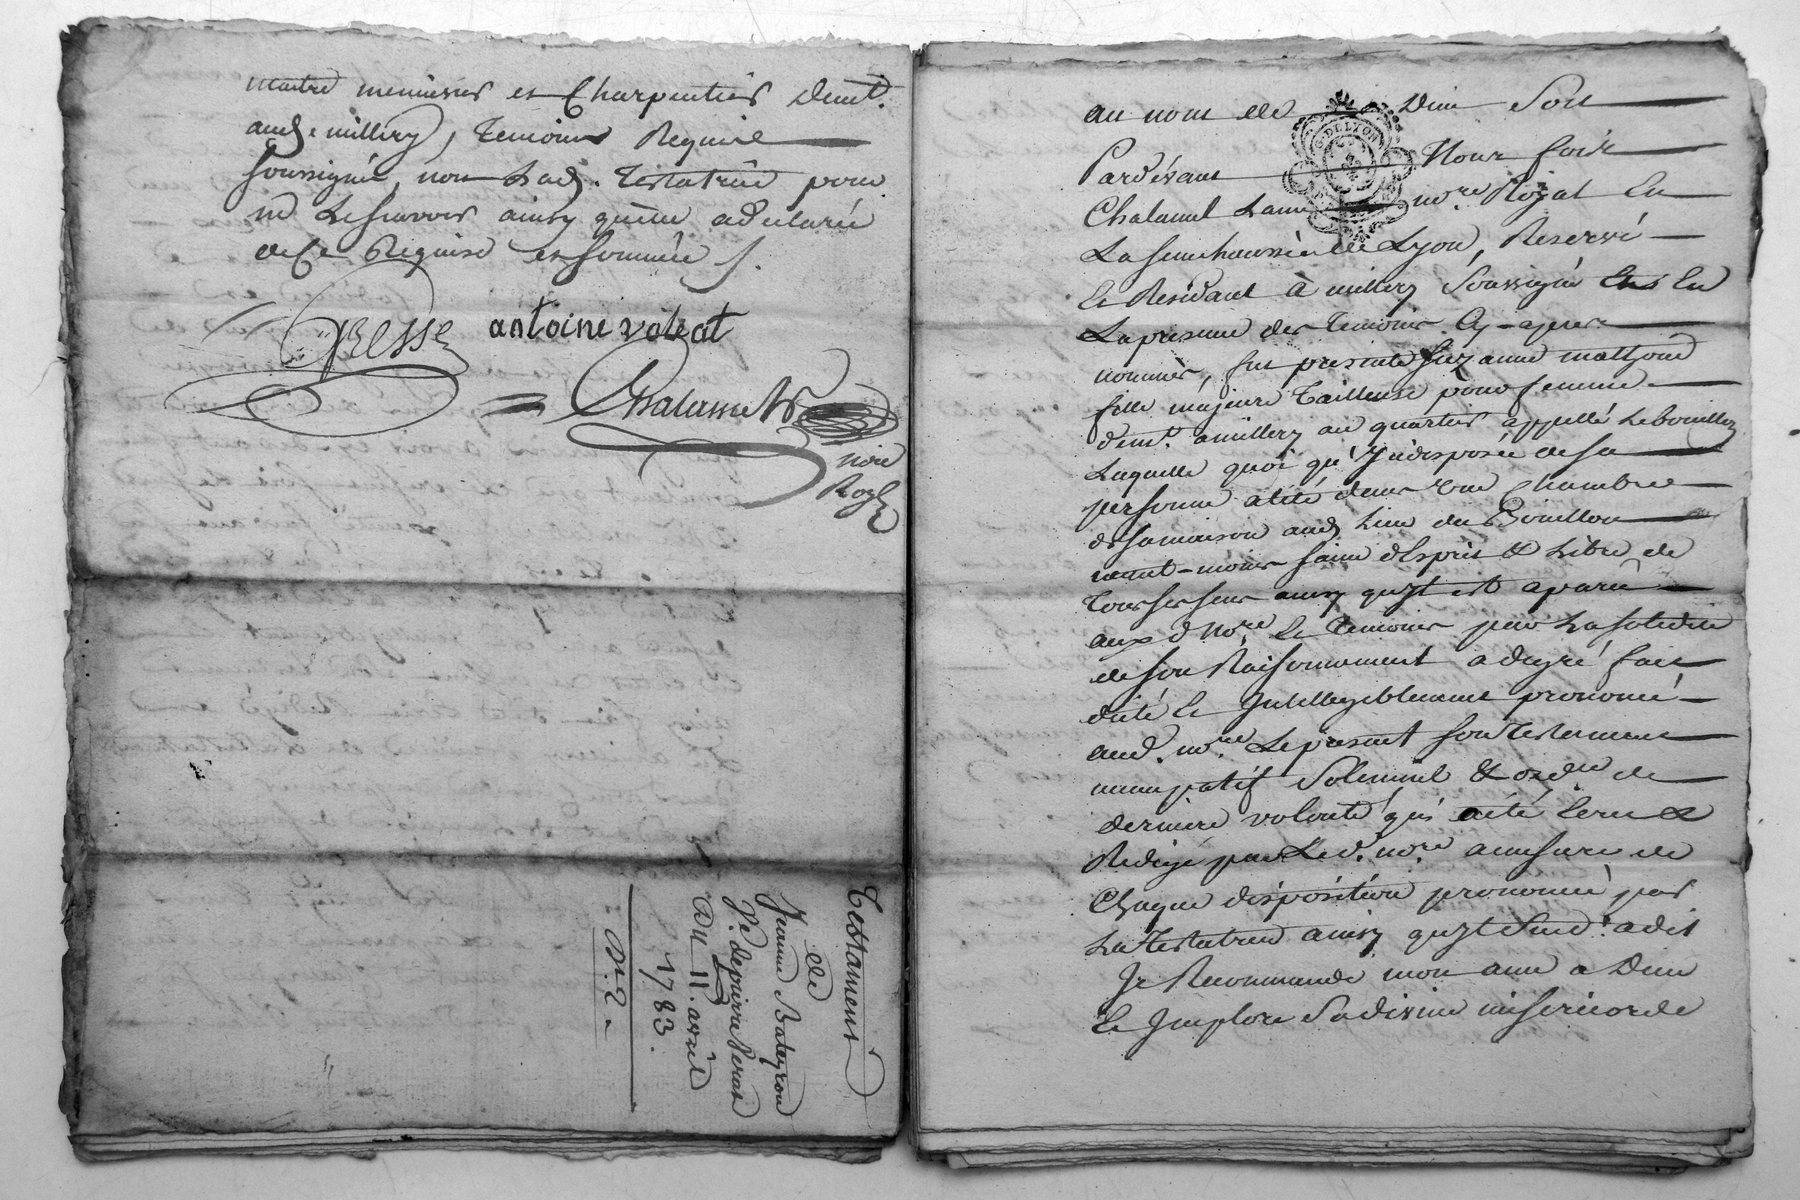 maitre menuisier et Charpentier demt.
aud. millery, temoins Requis
soussignés, non Lad. Testatrice pour
ne Le sçavoir ainsy qu'elle a déclaré
de Ce Requise et sommée /.
Gresse antoine volrat
Chalamel
nore
Royl
Testament
de
Jeanne Bateyron
fe. de pierre
Du 11. avril
1783.
au nom de Dieu Soit
G. DE LYON
Pardevant Nous foix
Chalamel Lainé nore. Royal En
La senechaussée de Lyon, Reservé
Et Residant à millery soussigné En
La presence des Temoins Cy-apres
nommés, fut presente Suzanne mathon
fille majeure Tailleuse pour femme
demt. a millery au quartier appellé Le bouillon
Laquelle quoi qu'Indisposée de sa
personne alité dans une Chambre
de sa maison aud. Lieu du Bouillon
neant-moins saine d'Esprit & Libre de
Tous ses sens ainsy qu'Il est aparu
aux d. nore. Et Temoins par La solidité
de son Raisonnement a degré fait
dicté Et Intelligiblement prononcé
aud. nore. Le present son Testament
nuncupatif Solemnel & ordre de
derniere volonté qui a été Ecrit &
Redigé par Led. nore. a mesure de
Chaque disposition prononcée par
La Testatrice ainsy qu'Il s'En suit a dit
Je Recommande mon ame a Dieu
Et Implore Sa divine misericorde